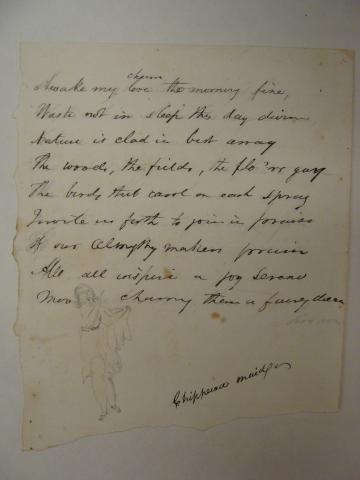 charm
Awake my love the morning fine,
Waste not in sleep this day divine
Nature is clad in best array
The woods, the fields, the flo're gay
The birds that carol on each spray
Invite us forth to join in praise
Of our Almighty makers
All all inspire a joy serene
More charming than a fairy dream
Chippewa maid